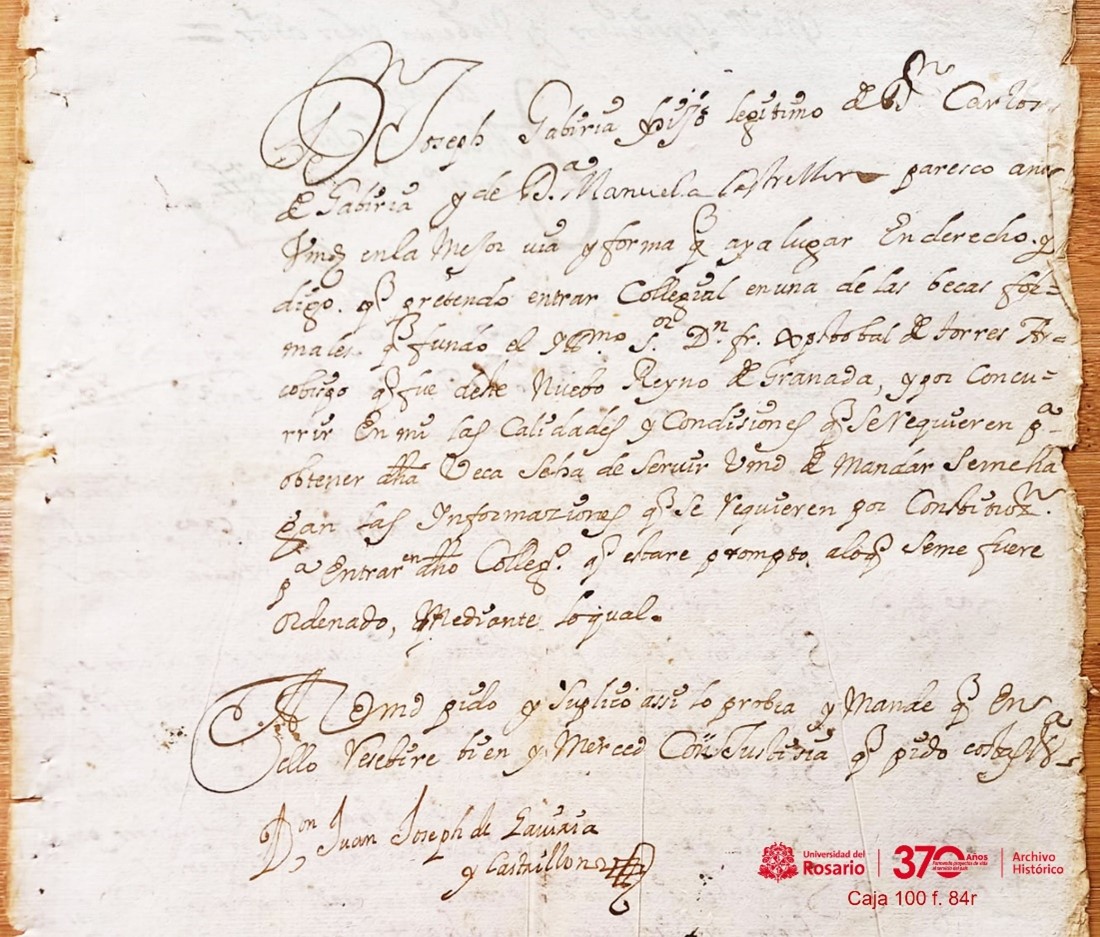 Dn Joseph Gabiria hijo legitimo de Dn Carlos
de Gabiria y de Da. Manuela Castrillon paresco ante
Vmd en la Mejor via y forma q aya lugar En derecho. y
digo. q pretendo entrar Collegial en una de las becas for=
males q fundo el Yllmo Sor Dn fr. Xptobal de torres Ar=
cobispo q fue deste Nuebo Reyno de Granada, y por Concu=
rrir En mi las Calidades y Condisiones q Se Requieren pa
obtener dha Veca Seha de Servir Vmd de Mandar Seme ha
gan las Informaziones q Se Requieren por Constituzn.
pa Entrar en dho Collego. q estare prompto. alo q Seme fuere
ordenado, Mediante lo qual.
A Vmd pido y Suplico assi lo probea y Mande q En
ello Resebire bien y Merced Con Justisia q pido costas
Don Juan Joseph de Gaviria
y Castrillon
Universidad del
Rosario
370 Años
Archivo
Histórico
Caja 100 f. 84r